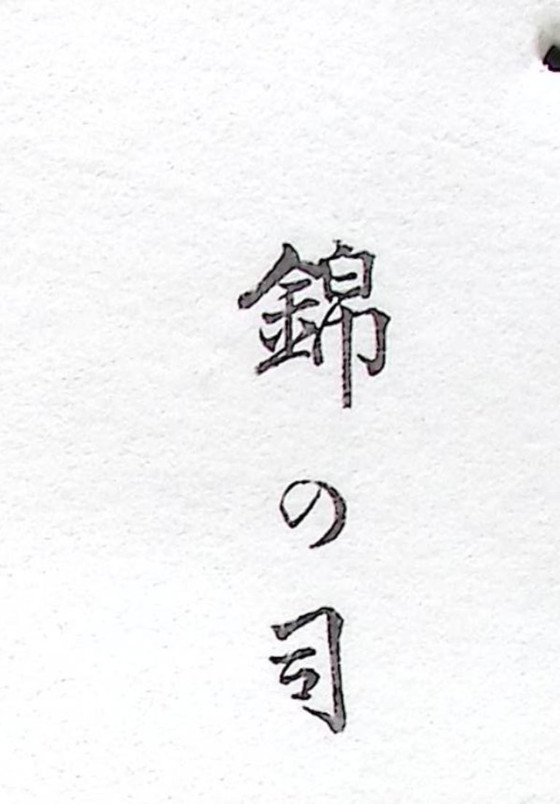 錦の司